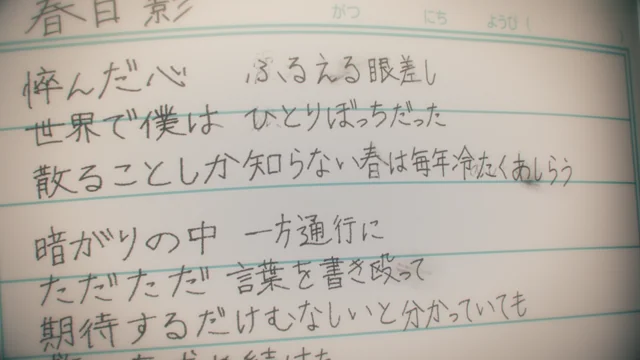 春日影 がつ にち ようび(
悴んだ心 ふるえる眼差し
世界で僕は ひとりぼっちだった
散ることしか知らない春は毎年冷たくあしらう
暗がりの中 一方通行に
ただただ 言葉を書き殴って
期待するだけむなしいと分かっていても